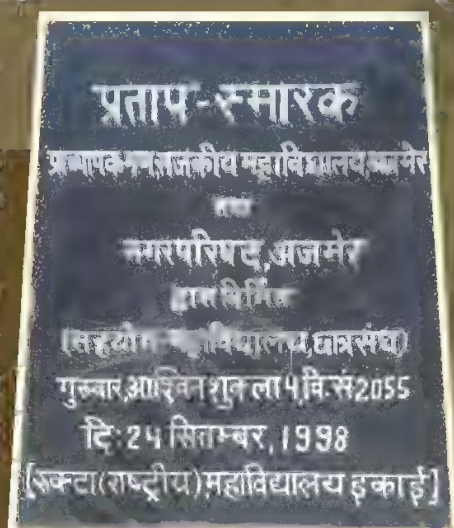 प्रताप-स्मारक
प्राध्यापकगण,राजकीय महाविद्यालय,अजमेर
तथा
नगर परिषद,अजमेर
द्वारा निर्मित
(सहयोग-महाविद्यालय,छात्रसंघ)
गुरुवार,आश्विन शुक्ला ५,वि.सं 2055
दि: 24 सितम्बर, 1998
[रूक्टा(राष्ट्रीय),महाविद्यालय इकाई]